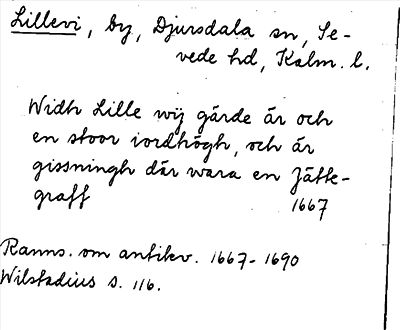 Lillevi, by, Djursdala sn, Se-
vede hd, Kalm. l.
Widh Lille wij gärde är och
en stoor iordhögh, och är
gissningh där wara en Jätte-
graff 1667
Ranns. om antikv. 1667-1690
Wilstadius s. 116.